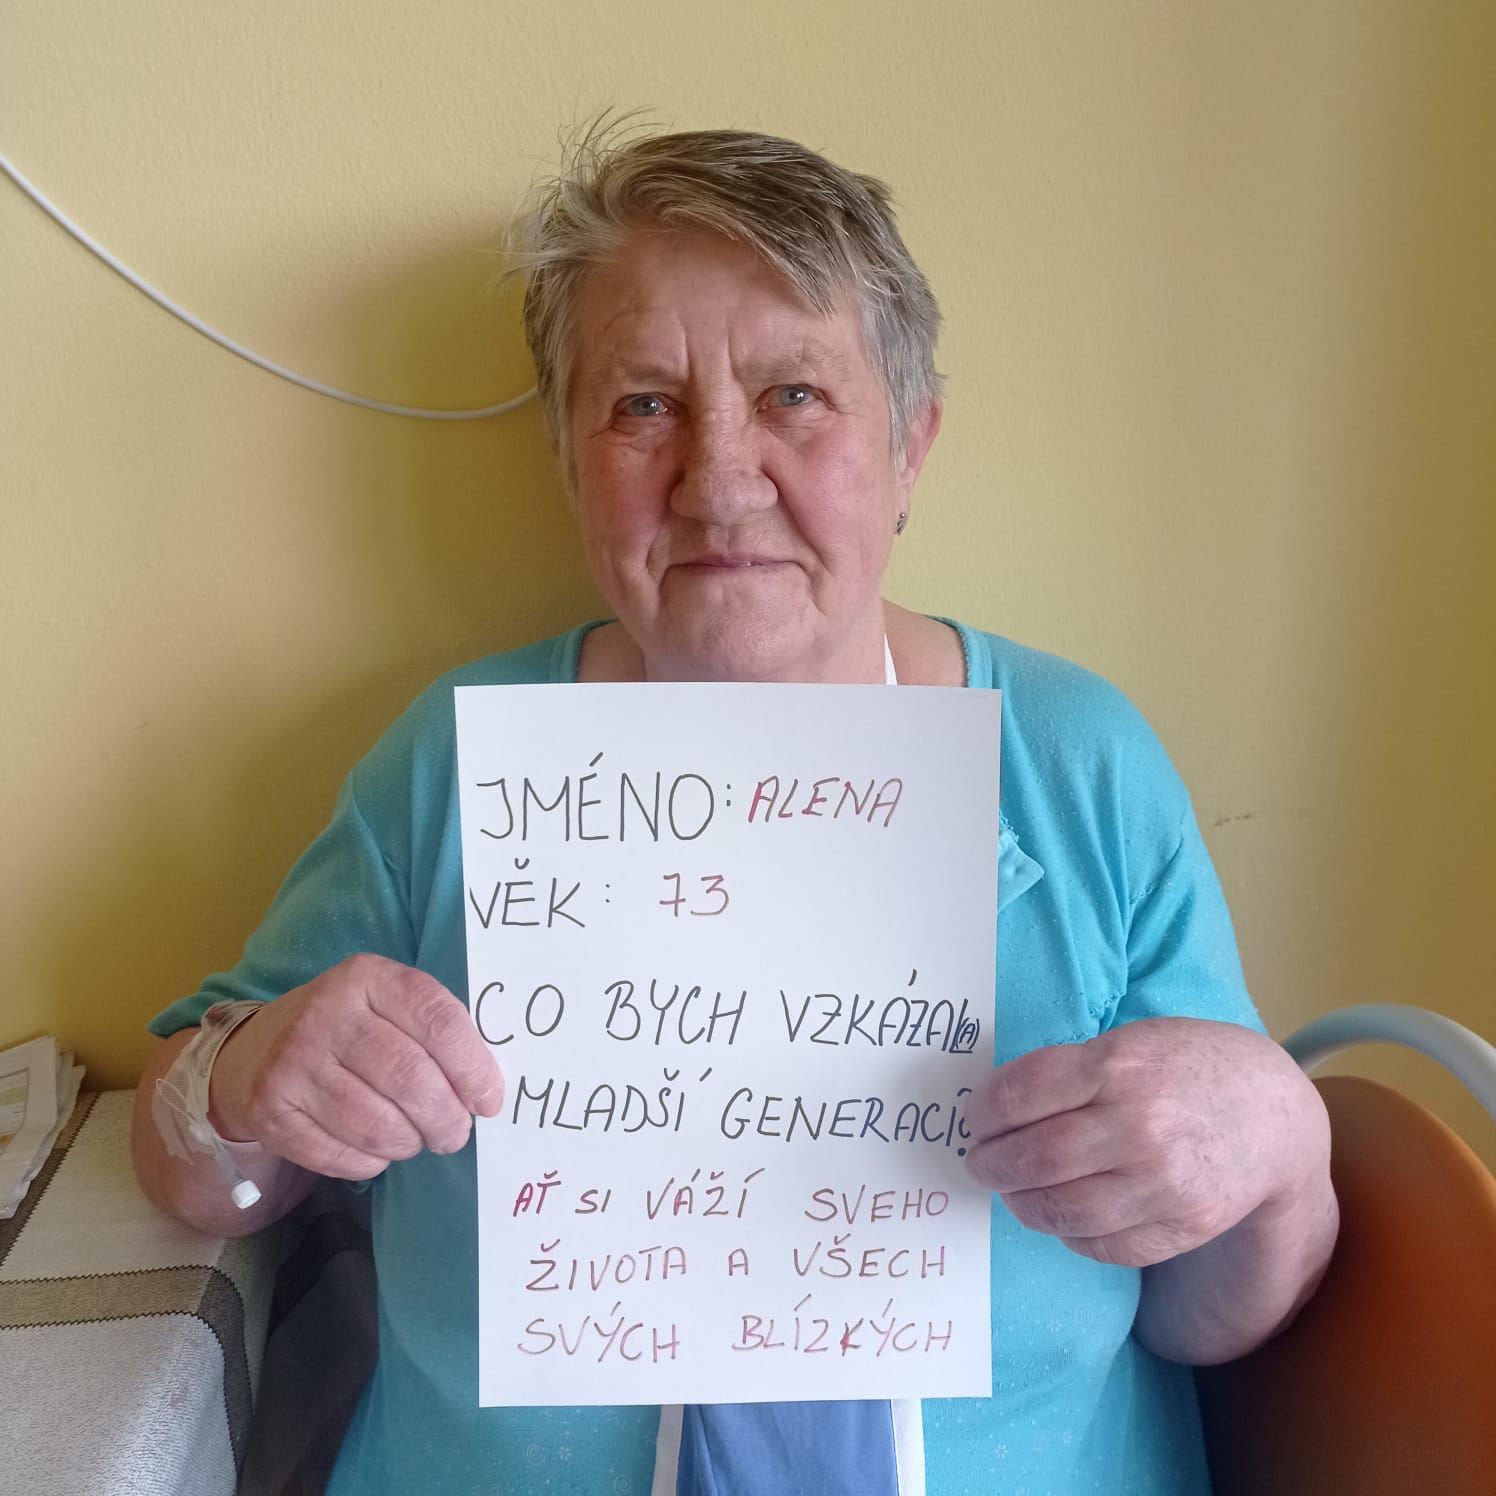 JMÉNO: ALENA
VĚK: 73
CO BYCH VZKÁZAL(A)
MLADŠÍ GENERACI?
AŤ SI VÁŽÍ SVEHO
ŽIVOTA A VŠECH
SVÝCH BLÍZKÝCH